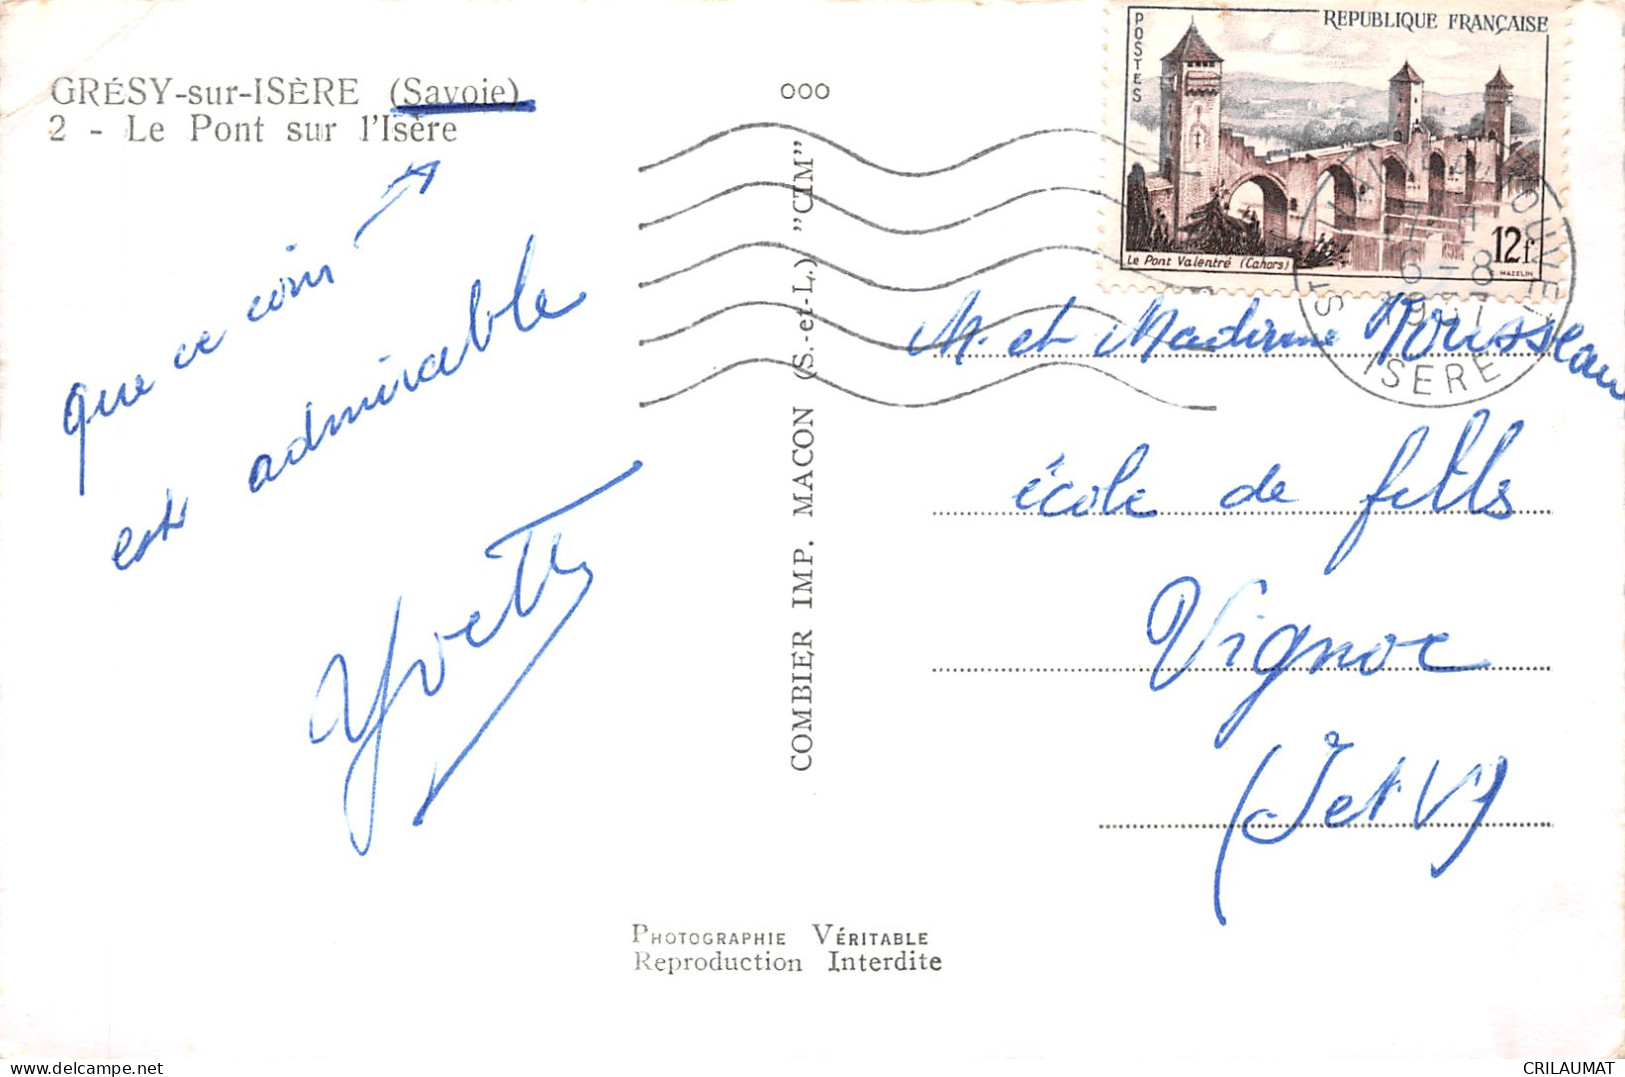 GRÉSY-sur-ISÈRE (Savoie)
2 - Le Pont sur l'Isère
que ce coin
est admirable
Yvette
000
COMBIER IMP. MACON (S.-et-L.) "CIM"
PHOTOGRAPHIE VÉRITABLE
Reproduction Interdite
POSTES
REPUBLIQUE FRANÇAISE
Le Pont Valentré (Cahors)
12f
MAZELIN
6-8
ISERE
M. et Madame Rousseau
école de filles
Vignoc
(I et V)
delcampe.net
CRILAUMAT